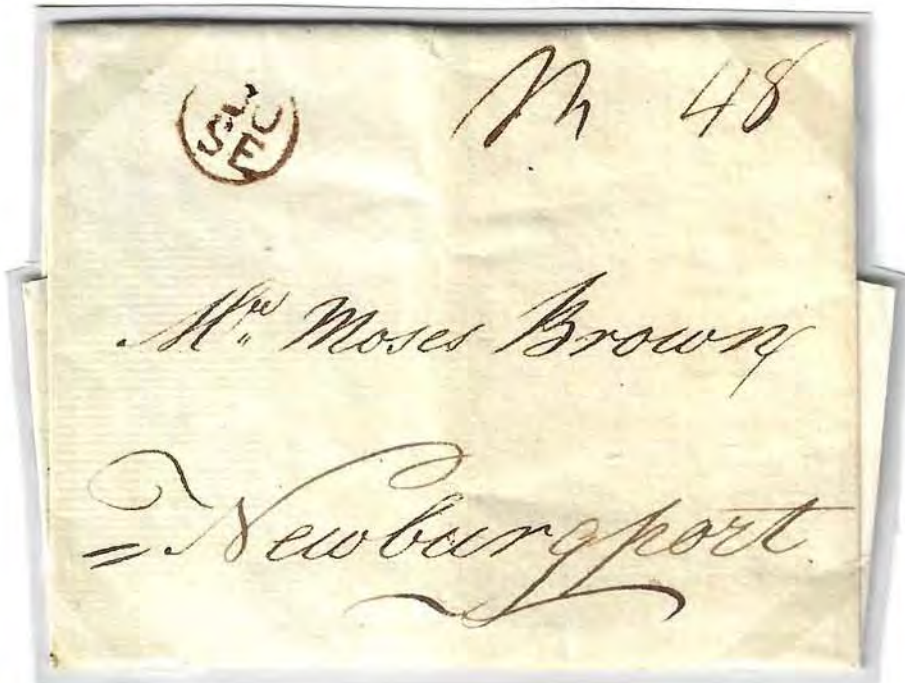 SE
48
Mr. Moses Brown
Newburyport